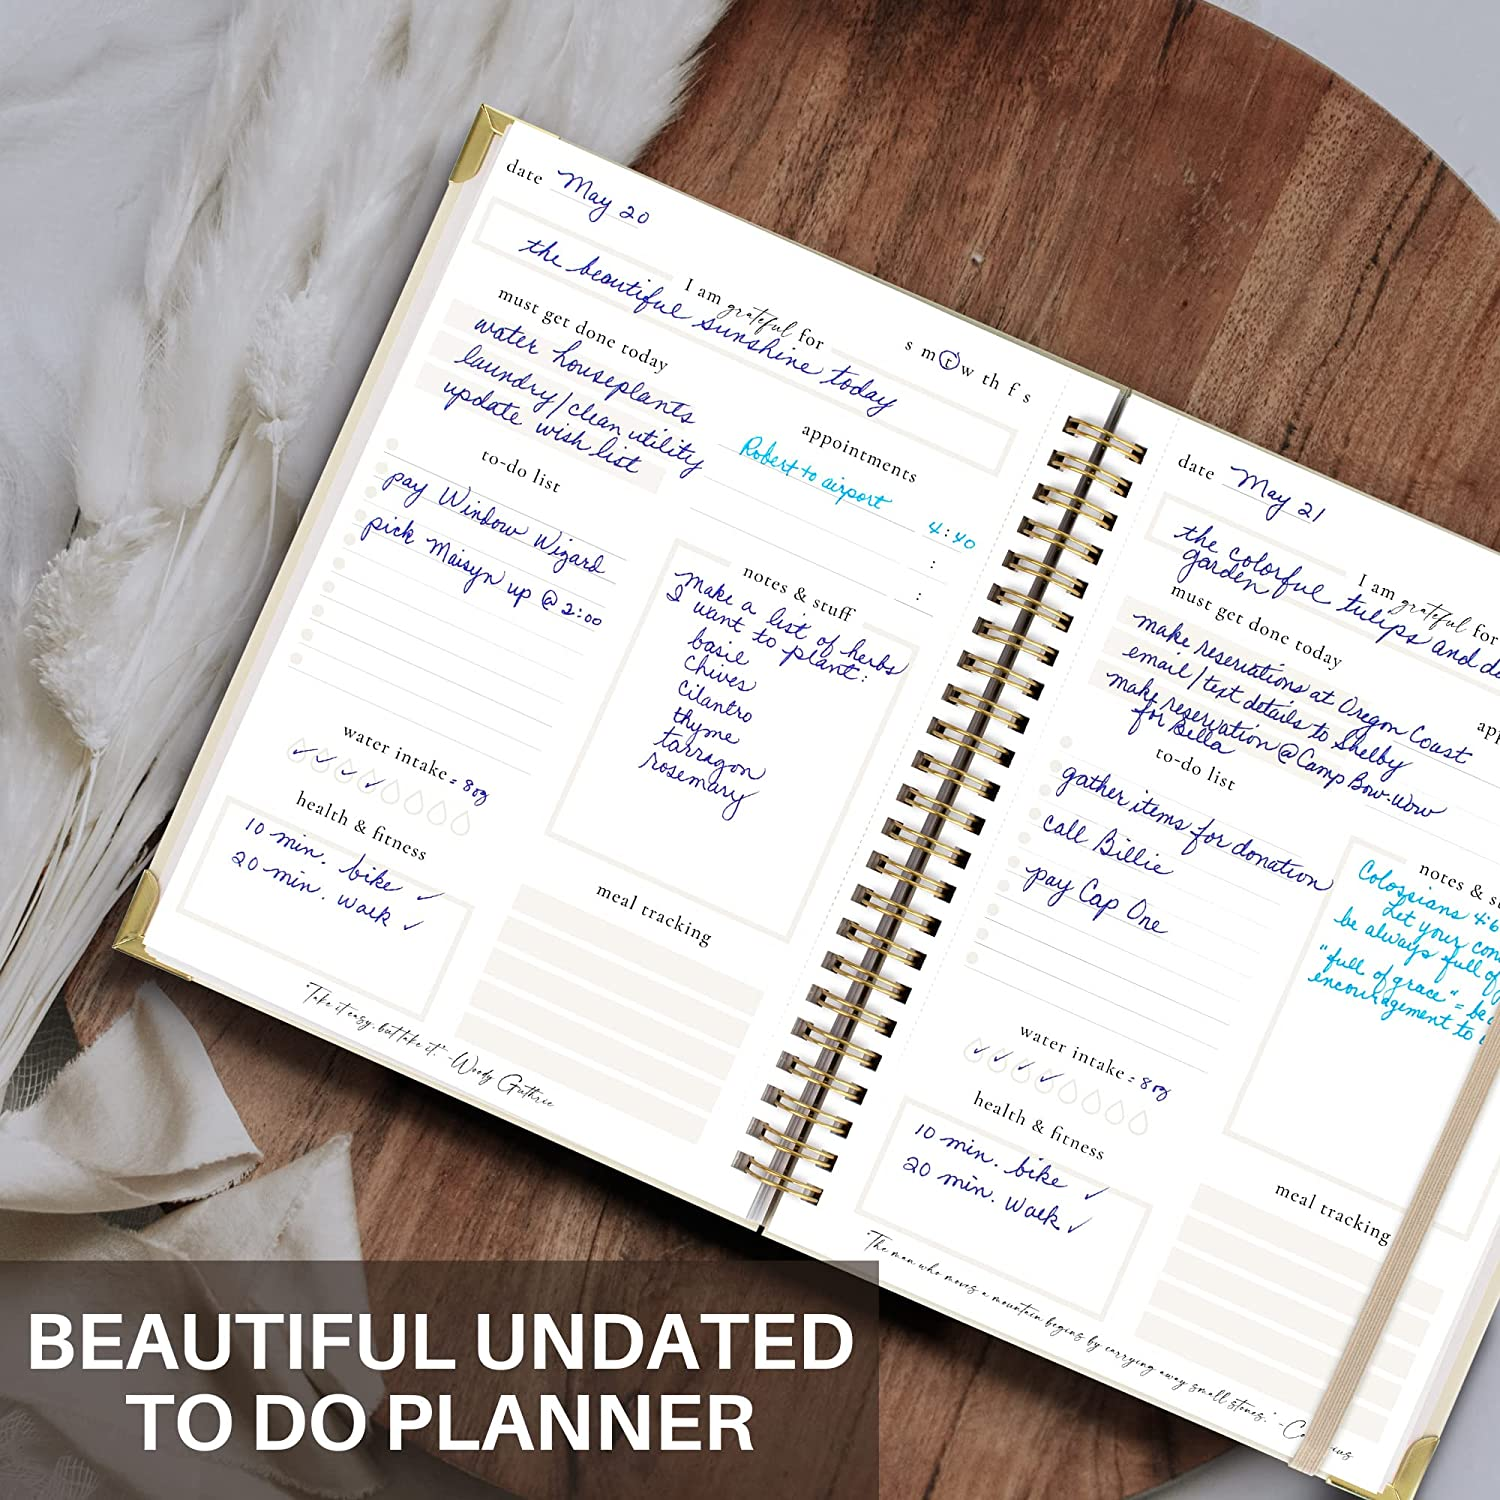 date May 20
I am grateful for
the beautiful sunshine today
s m t w th f s
must get done today
water houseplants
laundry/clean utility
update wish list
appointments
Robert to airport 4:40
:
:
to-do list
pay Window Wizard
pick Maisyn up @ 2:00
notes & stuff
make a list of herbs
I want to plant:
basil
chives
cilantro
thyme
tarragon
rosemary
water intake = 8oz
health & fitness
10 min. bike ✓
20 min. walk ✓
meal tracking
"Take it easy, but take it." -Woody Guthrie
date May 21
I am grateful for
the colorful tulips and
garden
must get done today
make reservations at Oregon Coast
email/text details to Shelby
make reservation @ Camp Bow-Wow
for Bella
to-do list
gather items for donation
call Billie
pay Cap One
notes &
Colossians 4:6
Let your
be always full of
"full of grace" =
encouragement to
water intake = 8oz
health & fitness
10 min. bike ✓
20 min. walk ✓
meal tracking
"The man who moves a mountain begins by carrying away small stones."
BEAUTIFUL UNDATED
TO DO PLANNER